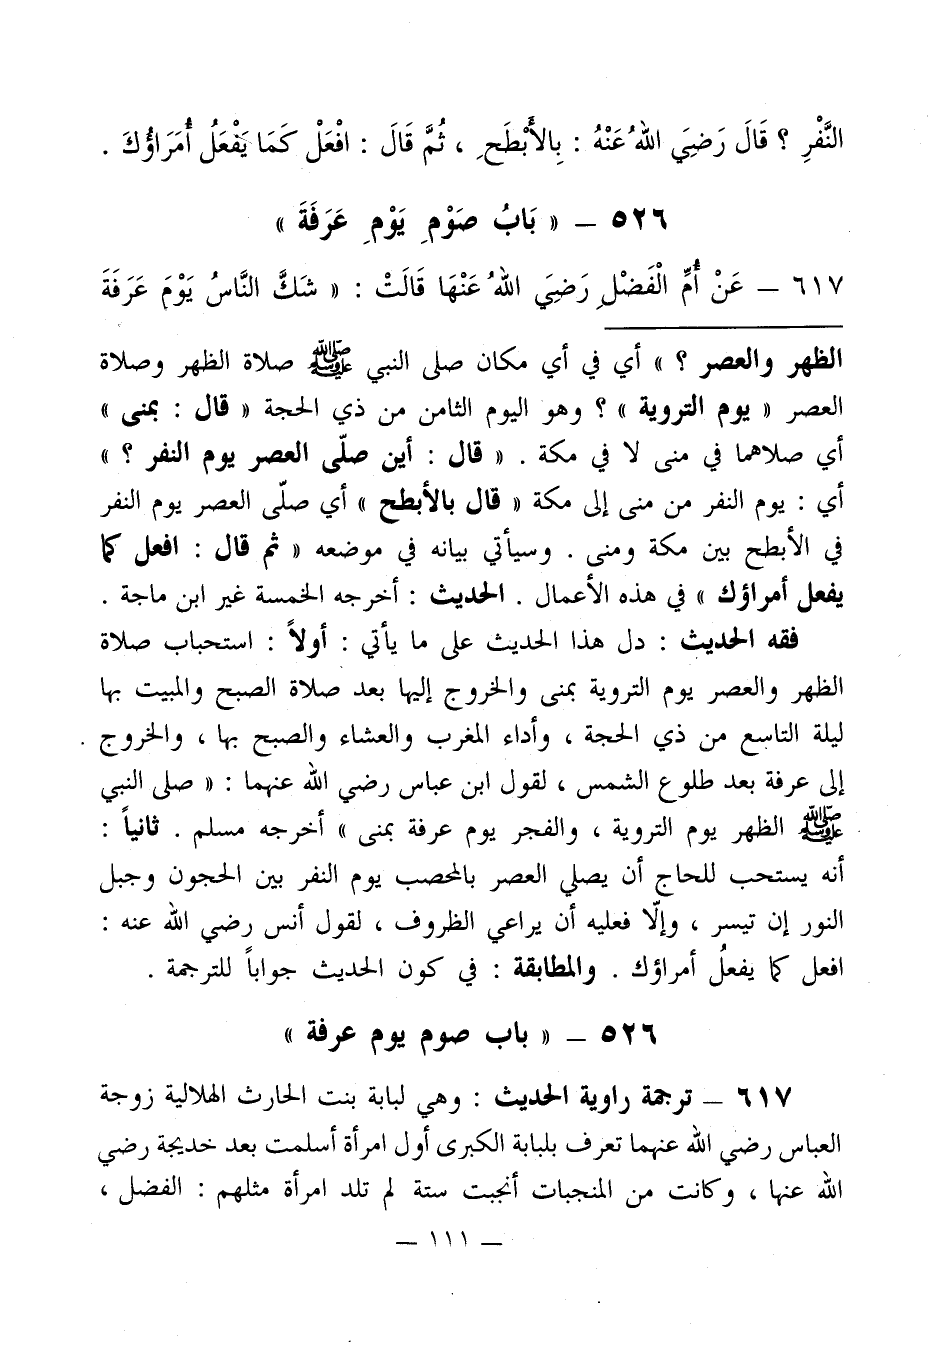 النَّفْرِ ؟ قَالَ رَضِيَ اللهُ عَنْهُ : بِالأَبْطَحِ ، ثُمَّ قَالَ : افْعَلْ كَمَا يَفْعَلُ أُمَرَاؤُكَ .
٥٢٦ – « بَابُ صَوْمِ يَوْمِ عَرَفَةَ »
٦١٧ – عَنْ أُمِّ الْفَضْلِ رَضِيَ اللهُ عَنْهَا قَالَتْ : « شَكَّ النَّاسُ يَوْمَ عَرَفَةَ
الظهر والعصر ؟ » أي في أي مكان صلى النبي ﷺ صلاة الظهر وصلاة
العصر « يوم التروية » ؟ وهو اليوم الثامن من ذي الحجة « قال : بمنى »
أي صلاهما في منى لا في مكة . « قال : أين صلّى العصر يوم النفر ؟ »
أي : يوم النفر من منى إلى مكة « قال بالأبطح » أي صلّى العصر يوم النفر
في الأبطح بين مكة ومنى . وسيأتي بيانه في موضعه « ثم قال : افعل كما
يفعل أمراؤك » في هذه الأعمال . الحديث : أخرجه الخمسة غير ابن ماجة .
فقه الحديث : دل هذا الحديث على ما يأتي : أولاً : استحباب صلاة
الظهر والعصر يوم التروية بمنى والخروج إليها بعد صلاة الصبح والمبيت بها
ليلة التاسع من ذي الحجة ، وأداء المغرب والعشاء والصبح بها ، والخروج
إلى عرفة بعد طلوع الشمس ، لقول ابن عباس رضي الله عنهما : « صلى النبي
ﷺ الظهر يوم التروية ، والفجر يوم عرفة بمنى » أخرجه مسلم . ثانياً :
أنه يستحب للحاج أن يصلي العصر بالمحصب يوم النفر بين الحجون وجبل
النور إن تيسر ، وإلّا فعليه أن يراعي الظروف ، لقول أنس رضي الله عنه :
افعل كما يفعلُ أمراؤك . والمطابقة : في كون الحديث جواباً للترجمة .
٥٢٦ – « باب صوم يوم عرفة »
٦١٧ – ترجمة راوية الحديث : وهي لبابة بنت الحارث الهلالية زوجة
العباس رضي الله عنهما تعرف بلبابة الكبرى أول امرأة أسلمت بعد خديجة رضي
الله عنها ، وكانت من المنجبات أنجبت ستة لم تلد امرأة مثلهم : الفضل ،
– ١١١ –